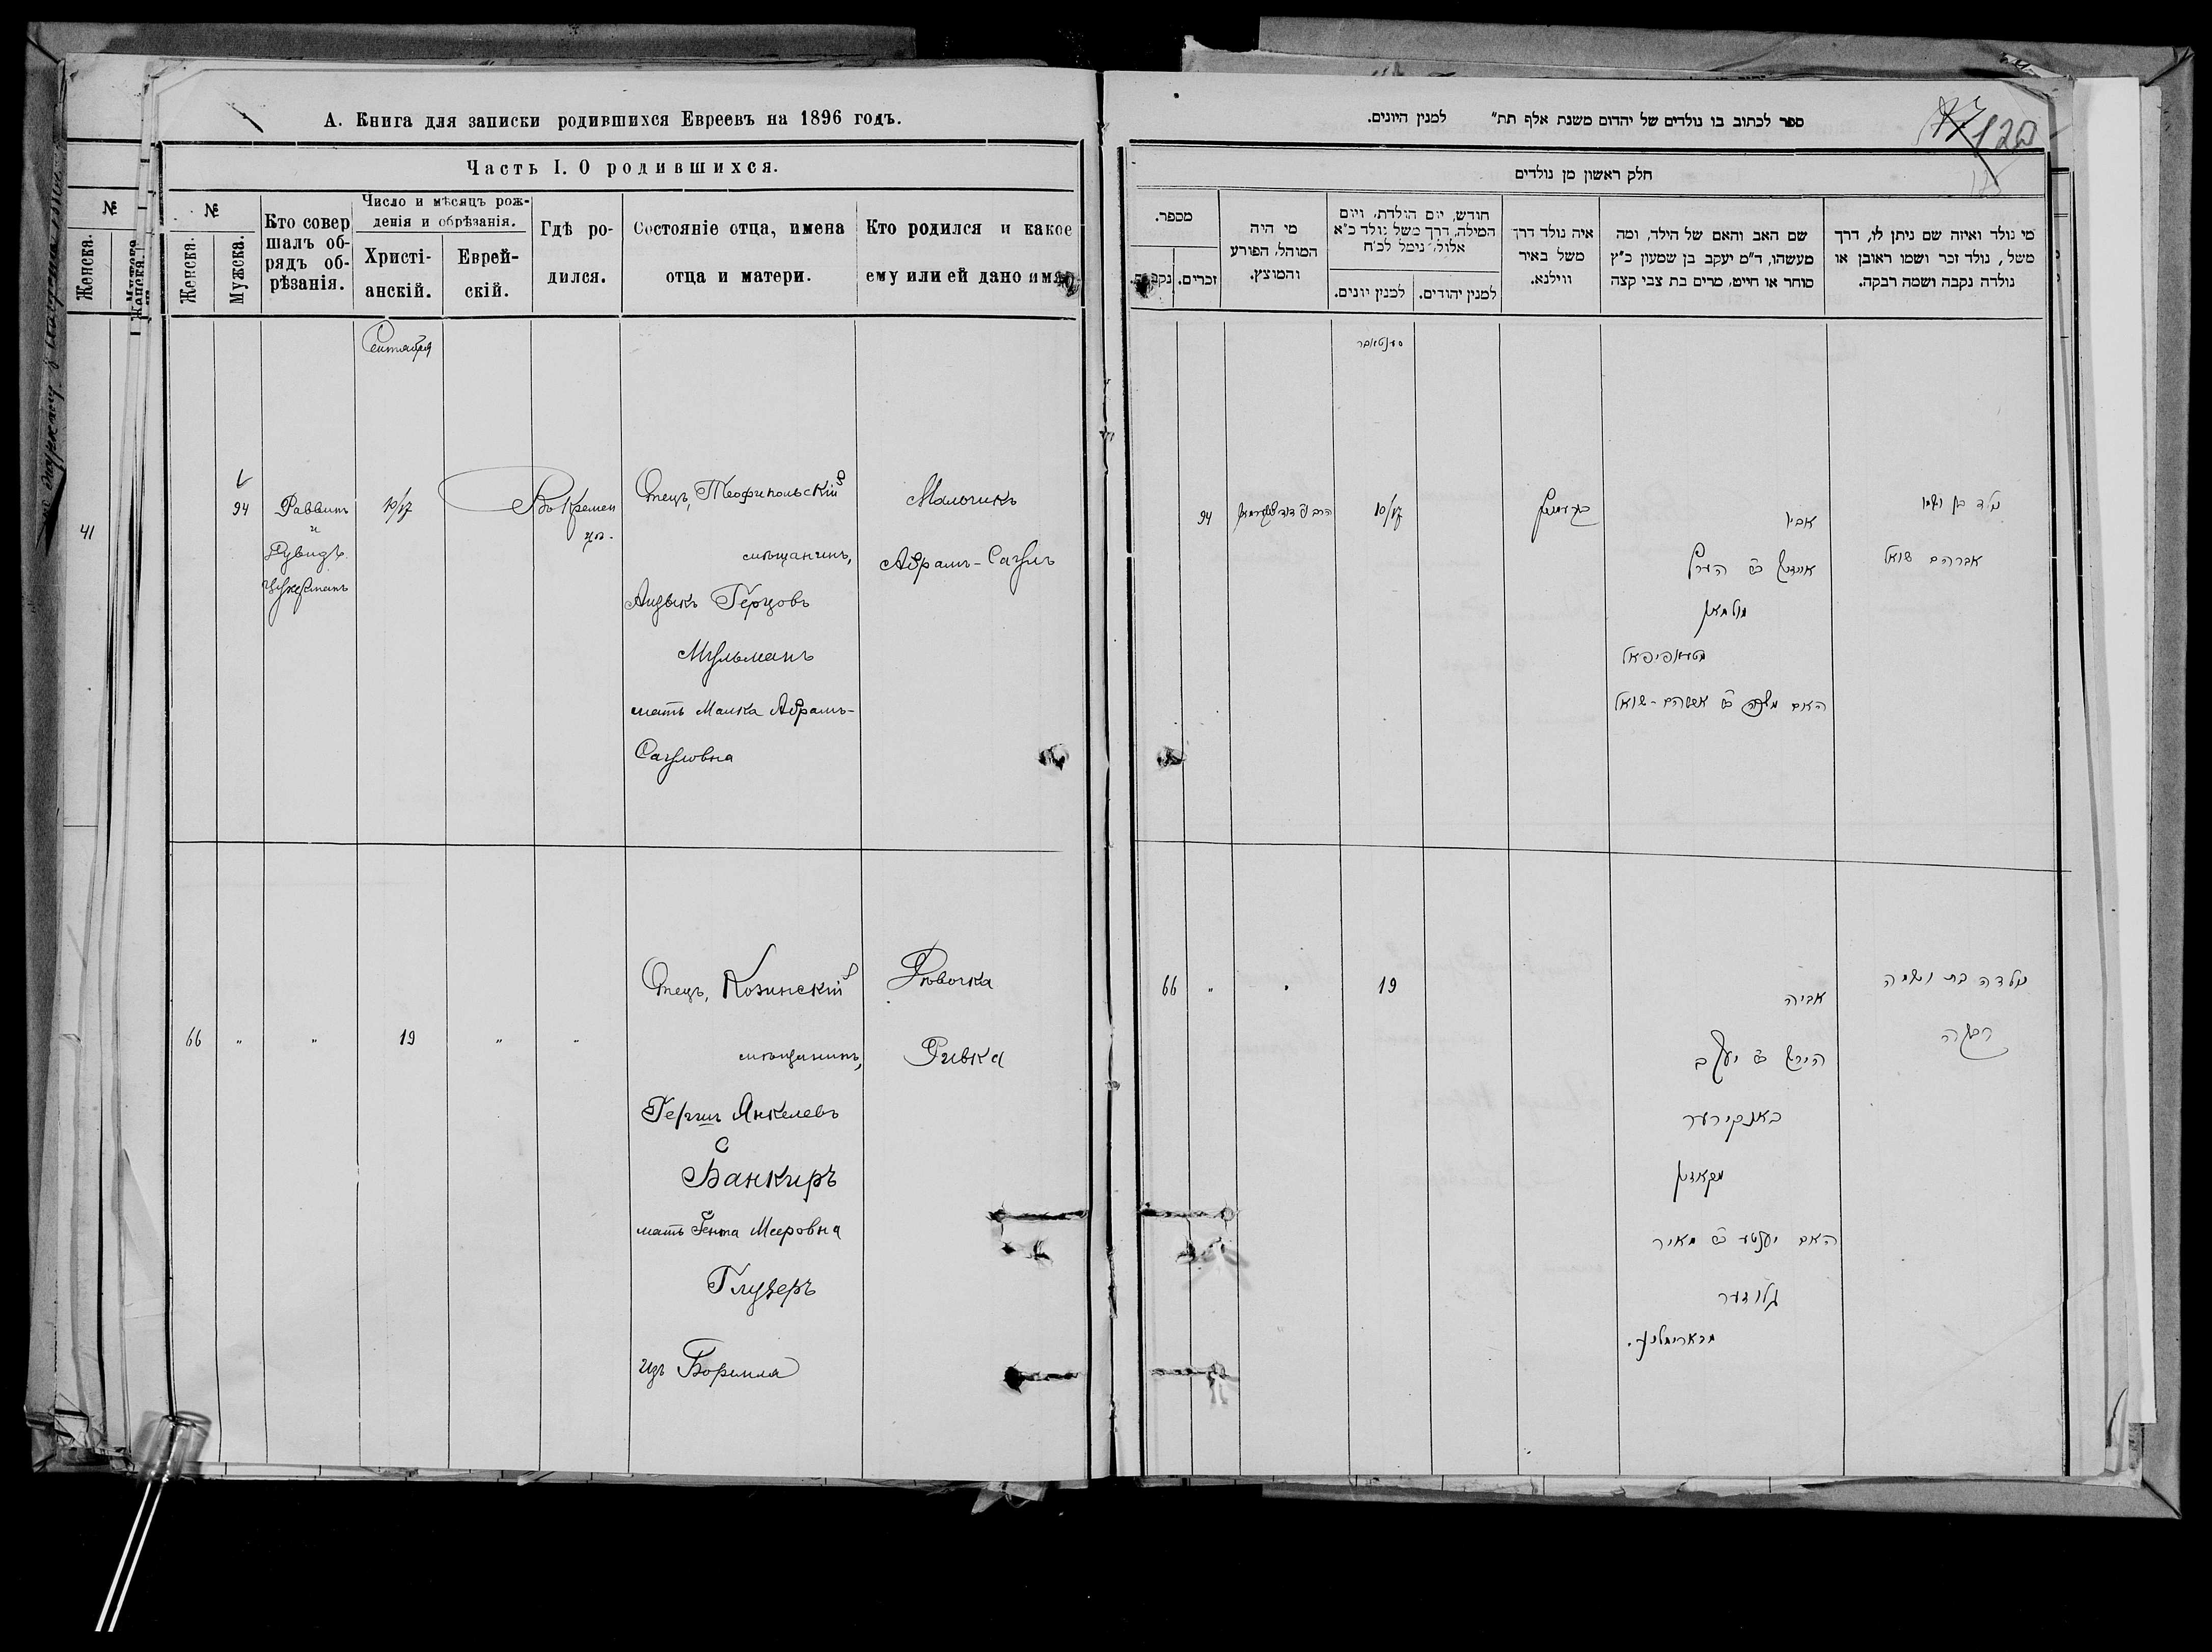 А. Книга для записки родившихся Евреевъ на 1896 годъ.
Часть I. О родившихся.
№
Женска.
№
Женска.
Мужска.
Кто совер
шалъ об-
рядъ об-
рѣзанія.
Число и мѣсяцъ рож-
денія и обрѣзанія.
Христі-
анскій.
Еврей-
скій.
Гдѣ ро-
дился.
Состояніе отца, имена
отца и матери.
Кто родился и какое
ему или ей дано имя.
Сентября
41
94
Раввинъ
и
Цукерманъ
10/17
Во Кремен
цѣ.
Отецъ, Теофипольскій
мѣщанинъ,
Айзыкъ Герцовъ
Мульманъ
мать Малка Абрамъ-
Сауловна
Мальчикъ
Абрамъ-Саулъ
66
"
"
19
"
"
Отецъ, Козинскій
мѣщанинъ,
Гершъ Янкелевъ
Банкиръ
мать Гента Мееровна
Глузеръ
изъ Боримля
Дѣвочка
Ривка
ספר לכתוב בו נולדים של יהדום משנת אלף תת" למנין היונים.
120
חלק ראשון מן נולדים
מספר.
זכרים.
מי היה
המוהל, הפורע
והמוצץ.
חודש, יום הולדת, ויום
המילה, דרך משל נולד כ"א
אלול, נימל לכ"ח
למנין יונים.
למנין יהודים.
איה נולד דרך
משל באיר
ווילנא.
שם האב והאם של הילד, ומה
מעשהו, ד"מ יעקב בן שמעון כ"ץ
סוחר או חייט, מרים בת צבי קצה
מי נולד ואיזה שם ניתן לו, דרך
משל, נולד זכר ושמו ראובן או
נולדה נקבה ושמה רבקה.
סענטאבר
94
10/17
אביו
אייזיק ב"ר הערץ
מולמאן
מטעאפיפאל
האם מלכה ב"ר אברהם-שואל
נולד בן ושמו
אברהם שואל
66
"
"
19
אביה
הירש ב"ר יעקב
באנקירער
מקאזין
האם יענטע ב"ר מאיר
גלוזער
נולדה בת ושמה
רבקה